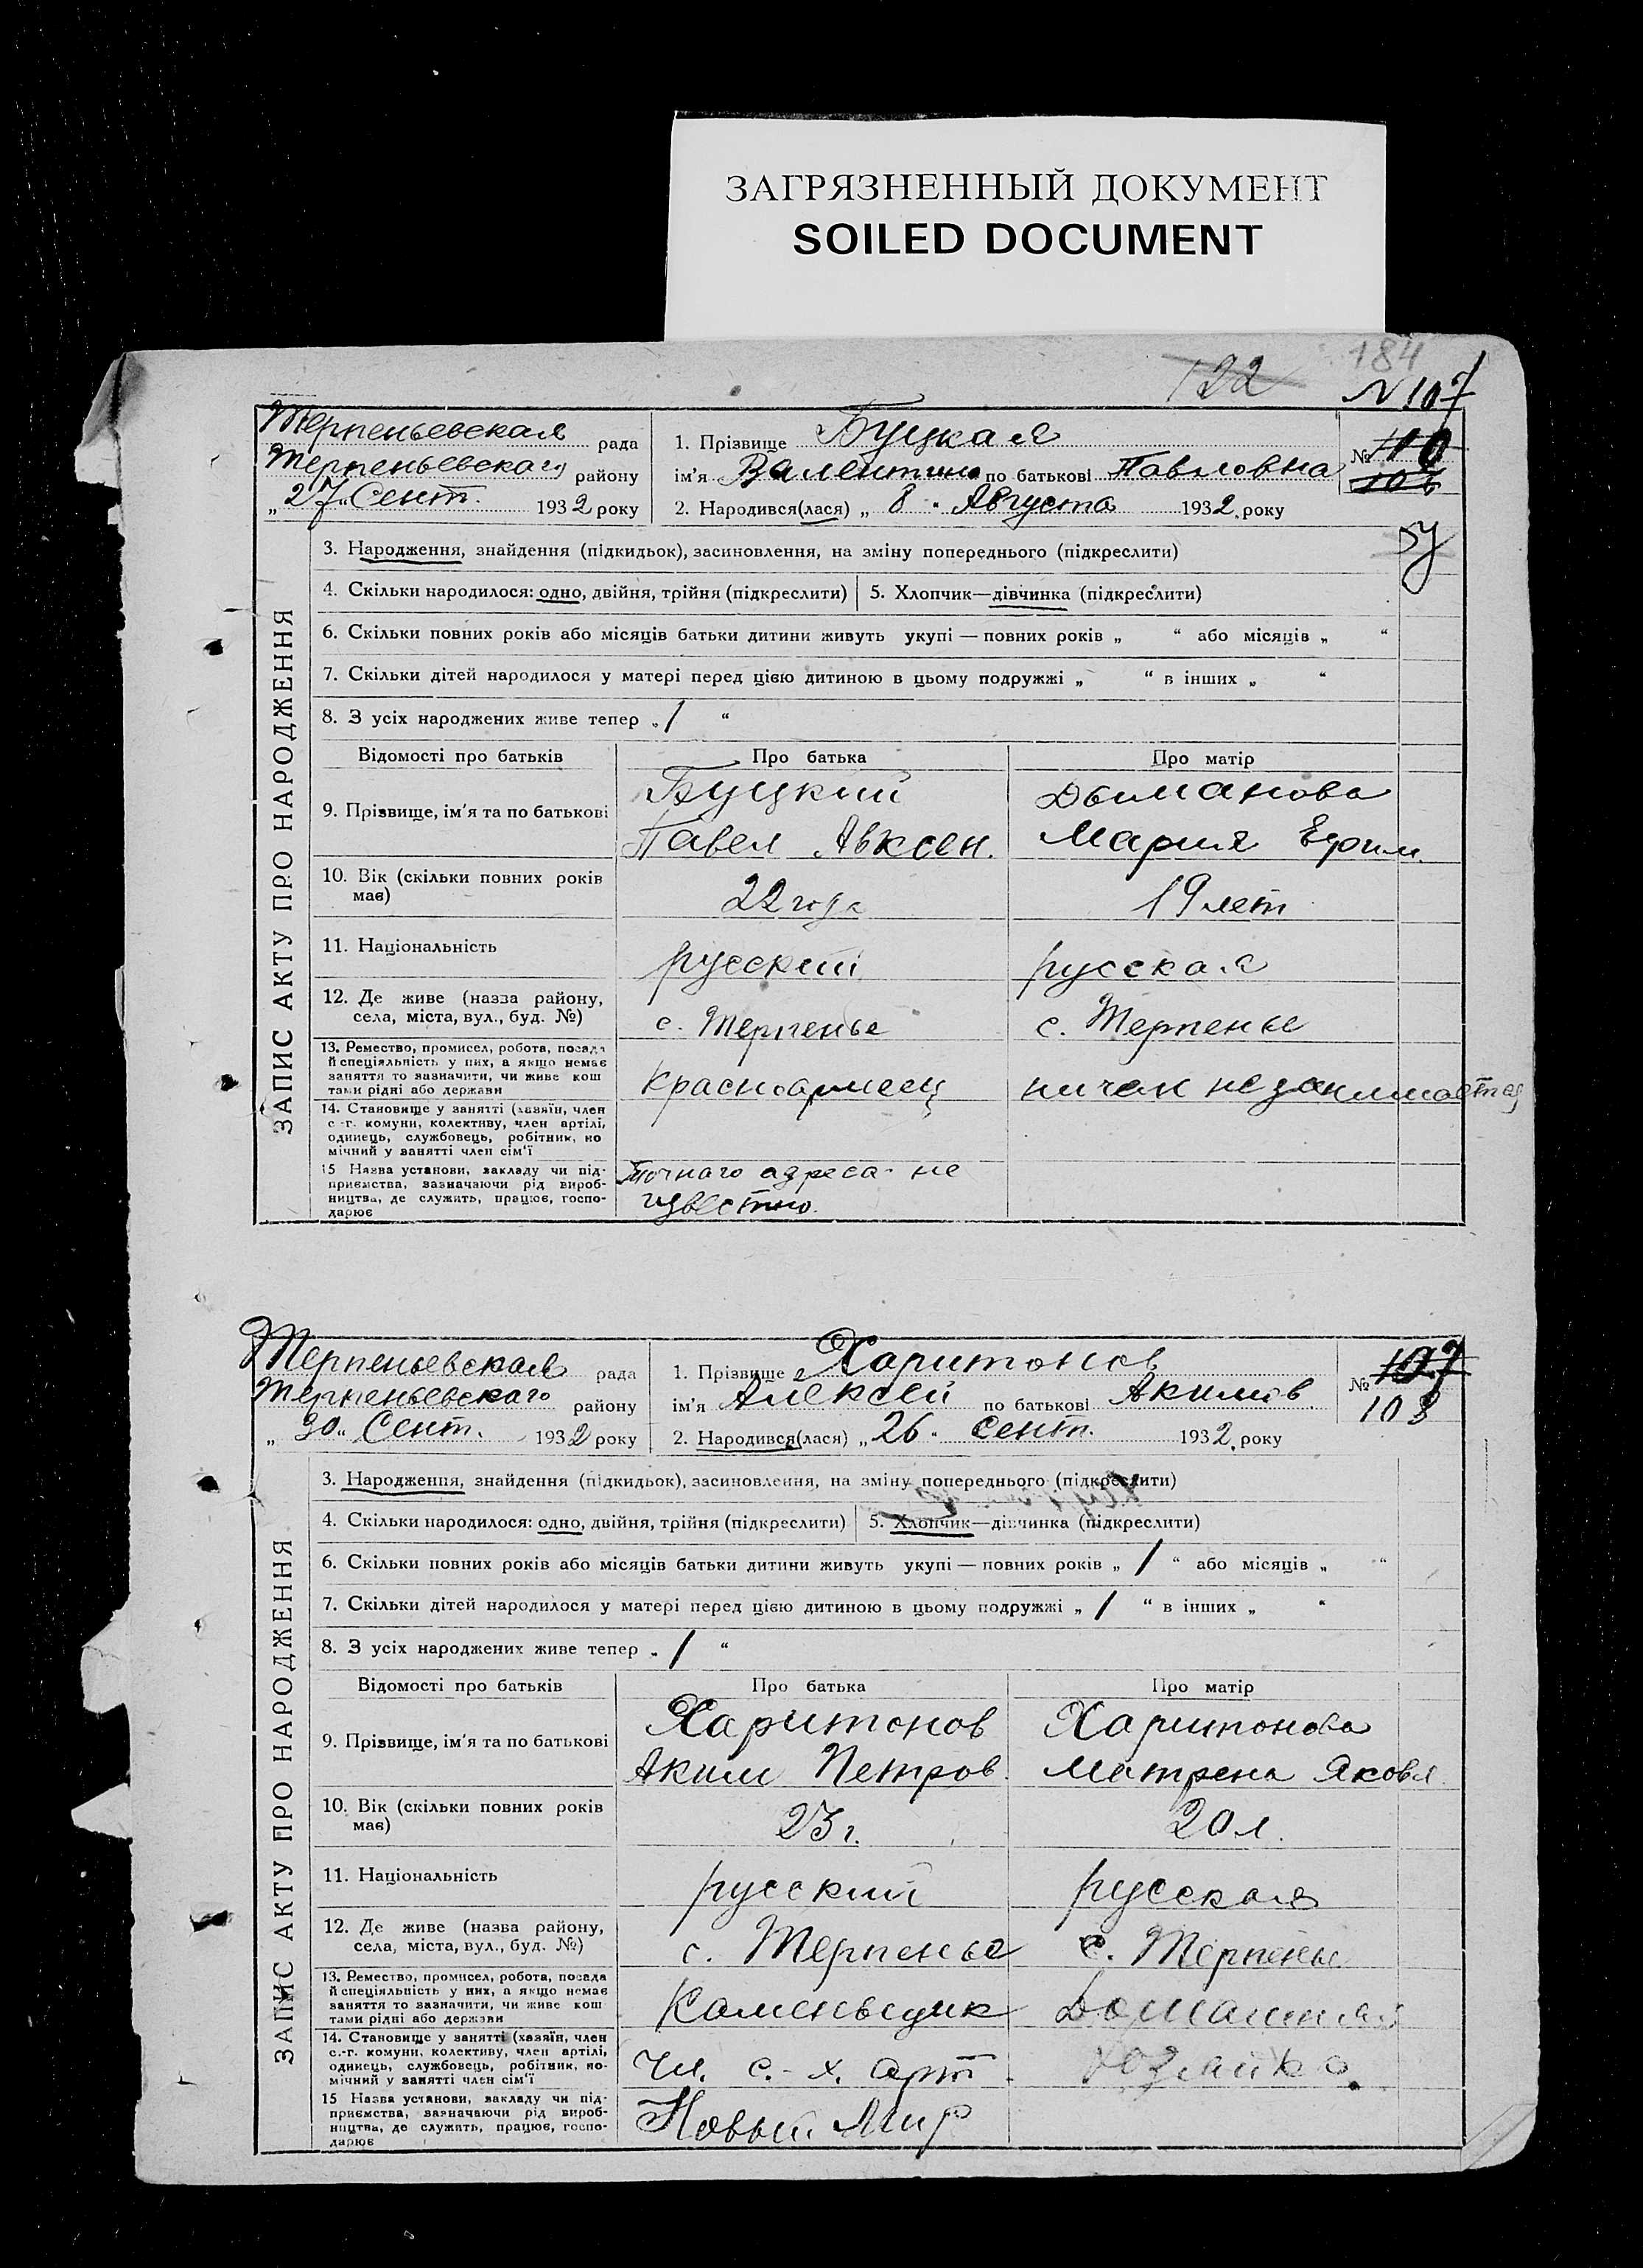 ЗАГРЯЗНЕННЫЙ ДОКУМЕНТ
SOILED DOCUMENT
122
184
N 107
Терпеньевская рада
Терпеньевскаго району
„27„ Сент. 1932 року
1. Прізвище Буцкая
ім'я Валентина по батькові Павловна
2. Народився(лася) „ 8 „ Августа 1932. року
№ 110
106
ЗАПИС АКТУ ПРО НАРОДЖЕННЯ
3. Народження, знайдення (підкидьок), засиновлення, на зміну попереднього (підкреслити)
4. Скільки народилося: одно, двійня, трійня (підкреслити) 5. Хлопчик—дівчинка (підкреслити)
6. Скільки повних років або місяців батьки дитини живуть укупі — повних років „ “ або місяців „ “
7. Скільки дітей народилося у матері перед цією дитиною в цьому подружжі „ “ в інших „ “
8. З усіх народжених живе тепер „ 1 “
Відомості про батьків Про батька Про матір
9. Прізвище, ім'я та по батькові
Буцкий
Павел Авксен.
Дьиманова
Мария Ефим
10. Вік (скільки повних років
має)
22 года
19 лет
11. Національність
русский
русская
12. Де живе (назва району,
села, міста, вул., буд. №)
с. Терпенье
с. Терпенье
13. Ремество, промисел, робота, посада
й спеціяльність у них, а якщо немає
заняття то зазначити, чи живе кош
тами рідні або держави
Красноармеец
ничем не занимается
14. Становище у занятті (хазяїн, член
с.-г. комуни, колективу, член артілі,
одинець, службовець, робітник, по
мічний у занятті член сім'ї
15 Назва установи, закладу чи під-
приємства, зазначаючи рід вироб-
ництва, де служить, працює, госпо-
дарює
Точнаго адреса не
известно.
Терпеньевская рада
Терпеньевскаго району
„ 30 „ Сент. 1932 року
1. Прізвище Харитонов
ім'я Алексей по батькові Акимов.
2. Народився(лася) „ 26 „ Сент. 1932. року
№ 107
108
ЗАПИС АКТУ ПРО НАРОДЖЕННЯ
3. Народження, знайдення (підкидьок), засиновлення, на зміну попереднього (підкреслити)
4. Скільки народилося: одно, двійня, трійня (підкреслити) 5. Хлопчик—дівчинка (підкреслити)
6. Скільки повних років або місяців батьки дитини живуть укупі — повних років „ 1 “ або місяців „ “
7. Скільки дітей народилося у матері перед цією дитиною в цьому подружжі „ 1 “ в інших „ “
8. З усіх народжених живе тепер „ 1 “
Відомості про батьків Про батька Про матір
9. Прізвище, ім'я та по батькові
Харитонов
Аким Петров.
Харитонова
Матрена Яковл
10. Вік (скільки повних років
має)
23 г.
20 л.
11. Національність
русский
русская
12. Де живе (назва району,
села, міста, вул., буд. №)
с. Терпенье
с. Терпенье
13. Ремество, промисел, робота, посада
й спеціяльність у них, а якщо немає
заняття то зазначити, чи живе кош
тами рідні або держави
Каменьщик
Домашняя
14. Становище у занятті (хазяїн, член
с.-г. комуни, колективу, член артілі,
одинець, службовець, робітник, по-
мічний у занятті член сім'ї
Чл. с.-х. арт.
Хозяйка.
15 Назва установи, закладу чи під-
приємства, зазначаючи рід вироб-
ництва, де служить, працює, госпо-
дарює
Новый Мир